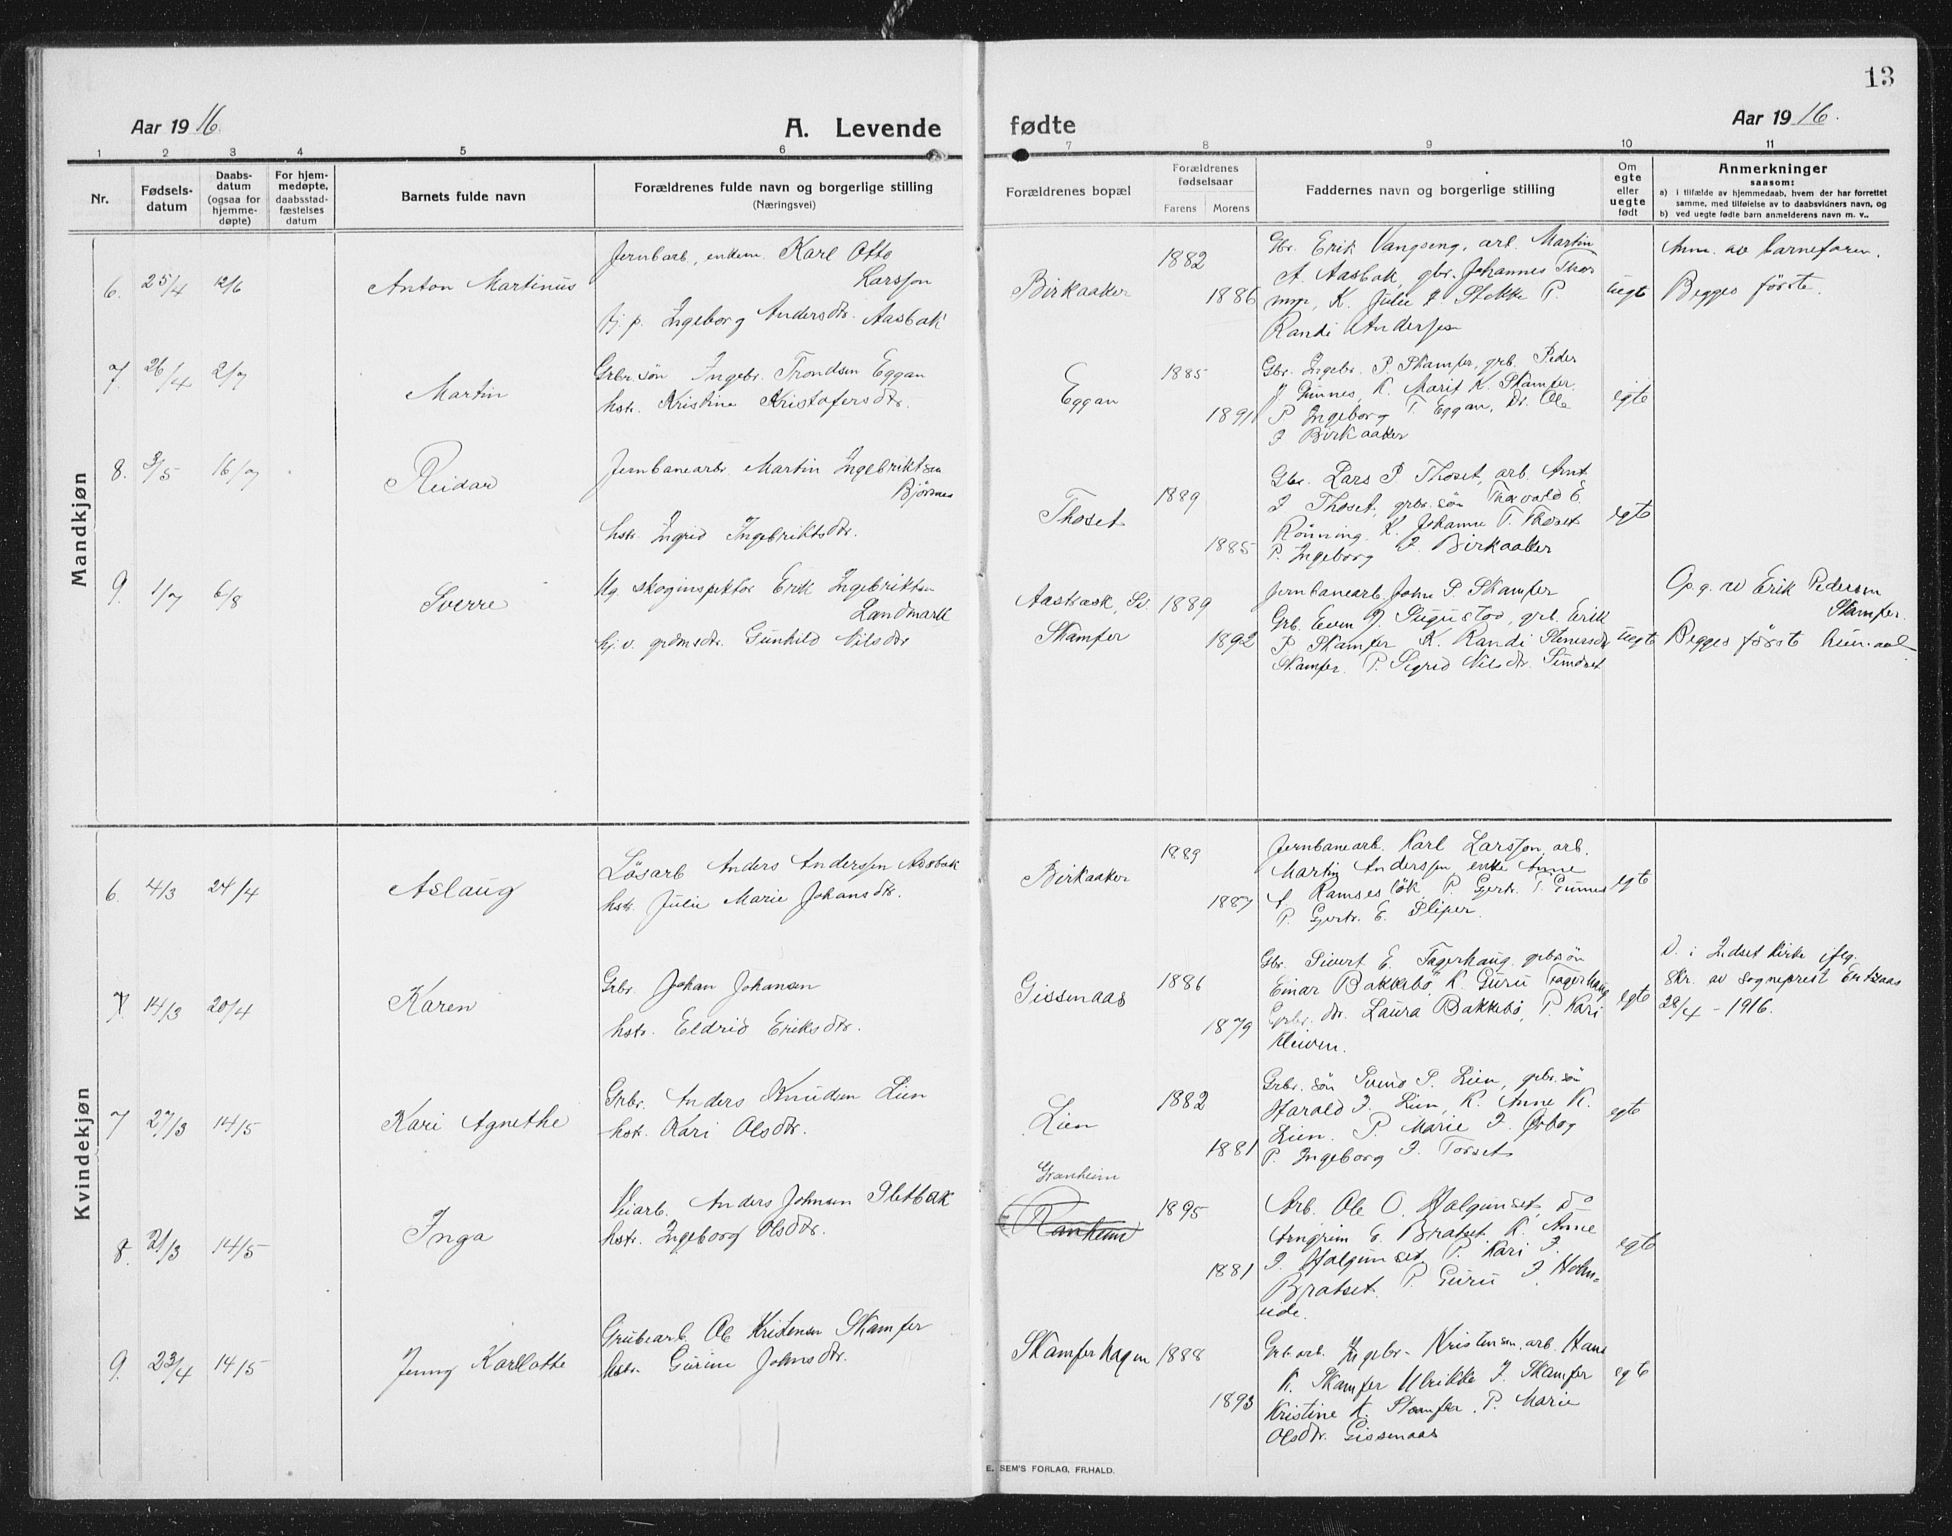 13
Aar 1916.
A. Levende
fødte
Aar 1916.
1 2 3 4 5 6 7 8 9 10 11
Nr.
Fødsels-
datum
Daabs-
datum
(ogsaa for
hjemme-
døpte)
For hjem-
medøpte,
daabsstad-
fæstelses
datum
Barnets fulde navn
Forældrenes fulde navn og borgerlige stilling
(Næringsvei)
Forældrenes bopæl
Forældrenes
fødselsaar
Farens Morens
Faddernes navn og borgerlige stilling
Om
egte
eller
uegte
født
Anmerkninger
saasom:
a) i tilfælde av hjemmedaab, hvem der har forrettet
samme, med tilføielse av to daabsvidners navn, og
b) ved uegte fødte barn anmelderens navn m. v..
Mandkjøn
6. 25/4 12/6
Anton Martinus
Jernbarb, enkem. Karl Otto
Larsson
Ingeborg Andersdtr. Aasbak
Birkaaker
1882
1886
Gbr. Erik Vangseng, arb. Martin
A. Aasbak, gbr. Johannes Thor
myr, K. Julie J Stokke P.
Randi Anderssen
uegte
Anm. av barnefaren.
Begges første.
7. 26/4 2/7
Martin
Grbr.søn Ingebr. Trondsen Eggan
hstr. Kristine Kristofersdtr.
Eggan
1885
1891
Gbr. Ingebr. P. Skamfer, grb. Peder
J Gunnes, K. Marit K. Skamfer
P Ingeborg T. Eggan, Dr. Ole
J Birkaaker
egte
8. 3/5 16/7
Reidar
Jernbanearb. Martin Ingebriktsen
Bjørnes
hstr. Ingrid Ingebriktsdtr.
Thoset
1889
1885
Gbr. Lars P Thoset, arb. Arnt
J Thoset, grbr.søn Thorvald E.
Rønning. K. Johanne T. Thoset
P. Ingeborg J. Birkaaker
egte
9. 1/7 6/8
Sverre
Ug. skoginspektør Erik Ingebriktsen
Landmark
Gunhild Nilsdtr
Aasbask,
Skamfer
1889
1892
Jernbanearb. John P. Skamfer
Grb. Even J. Gugustoo, grb. Erik
P Skamfer K. Randi Stenersdtr
Skamfer. P. Sigrid Nilsdtr. Sundset
uegte
Op.g. av Erik Pedersen
Skamfer.
Begges første leiermaal
Kvindekjøn
6. 4/3 24/4
Aslaug
Løsarb Anders Anderssen Aasbak
hstr. Julie Marie Johansdtr.
Birkaaker
1889
1887
Jernbanearb. Karl Larsson, arb.
Martin Anderssen, enke Anne
A. Ramsesløk P. Gjertr. T. Gunnes
P. Gjertr. E. Sliper.
egte
7. 14/3 20/4
Karen
Grbr. Johan Johansen
hstr. Eldrid Eriksdtr.
Gissenaas
1886
1879
Gbr. Sivert E. Fagerhaug, grbsøn
Einar Bakkebø, K. Guru Fagerhaug
Grbr. dtr. Laura Bakkebø, P. Kari
Kleiven.
egte
D. i Indset kirke iflg.
skr. av sogneprest
28/4 - 1916.
7 27/3 14/5
Kari Agnethe
Grbr. Anders Knudsen Lien
hstr. Kari Olsdtr.
Lien
1882
1881
Grbr. søn Svend P. Lien, grbr.søn
Harald J. Lien, K. Anne K.
Lien. P. Marie J.
P. Ingeborg J. Torset
egte
8. 21/3 14/5
Inga
Veiarb. Anders Johnsen Sletbak
hstr. Ingeborg Olsdtr.
Granheim
Ranheim
1895
1881
Arb. Ole O. Halgunset, do
Arngrim E. Bratset. K. Anne
J. Halgunset, P. Kari J.
Bratset. P. Guru J. Holm-
lide.
egte
9. 23/4 14/5
Jenny Karllotte
Grubearb. Ole Kristensen Skamfer
hstr. Gurine Johnsdtr.
Skamferhagen
1888
1893
Grb.arb. Ingebr. Kristensen, arb. Hans
K. Skamfer Ulrikke J. Skamfer
Kristine K. Skamfer. P. Marie
Olsdtr. Gissenaas
egte
E. SEM'S FORLAG, FR.HALD.